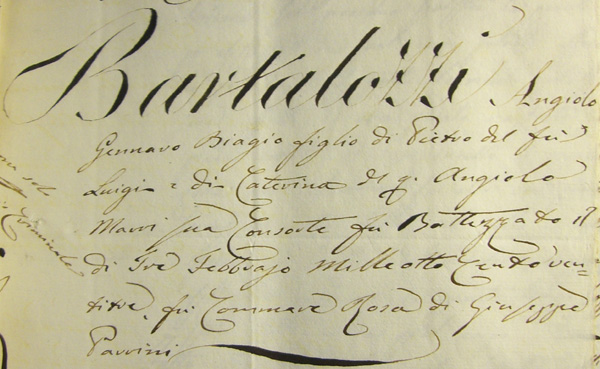 Bartalozzi Angiolo
Gennaro Biagio figlio di Pietro del fu
Luigi e di Caterina del q. Angiolo
Marri sua Consorte fu Battezzato il
di Tre Febbrajo Milleotto Cento ven-
titre, fu Commare Rosa di Giuseppe
Parrini